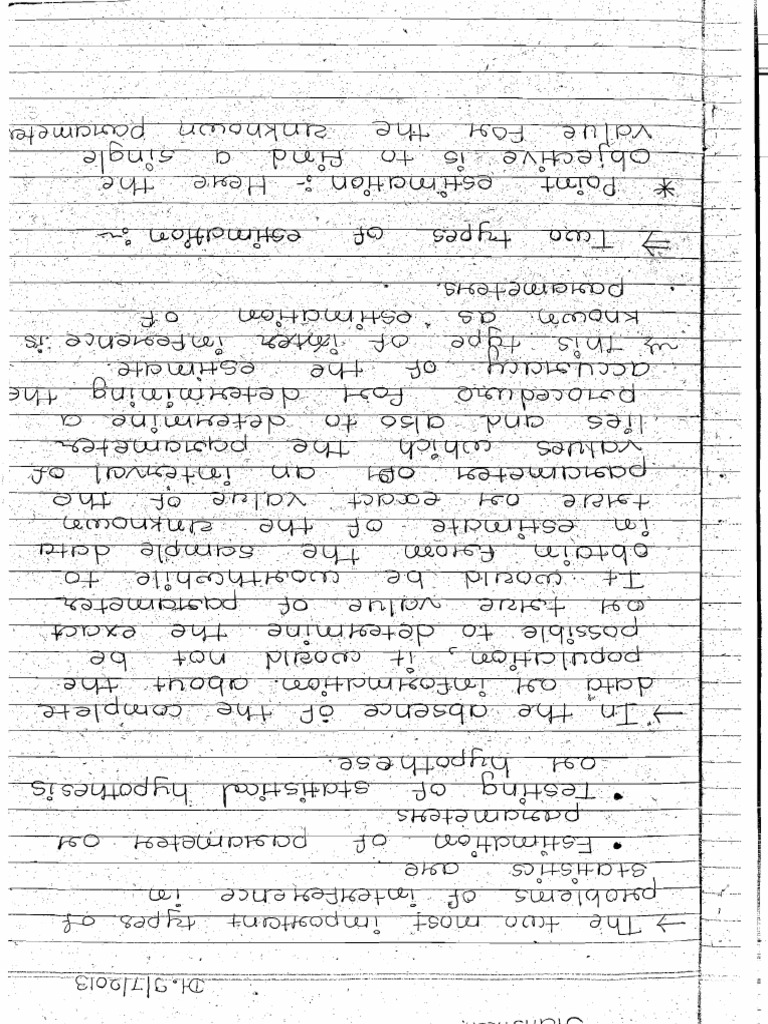 Dt. 9/7/2013
→ The two most important types of
problems of interference in
statistics are
• Estimation of parameter or
parameters
• Testing of statistical hypothesis
or hypothese.
→ In the absence of the complete
data or information about the
population, it would not be
possible to determine the exact
or true value of parameter
It would be worthwhile to
obtain from the sample data
in estimate of the unknown
true or exact value of the
parameter or an interval of
values which the parameter
lies and also to determine a
procedure for determining the
accuracy of the estimate.
this type of inference is
known as estimation of
parameters.
⇒ Two types of estimation :-
* Point estimation :- Here the
objective is to find a single
value for the unknown parameter